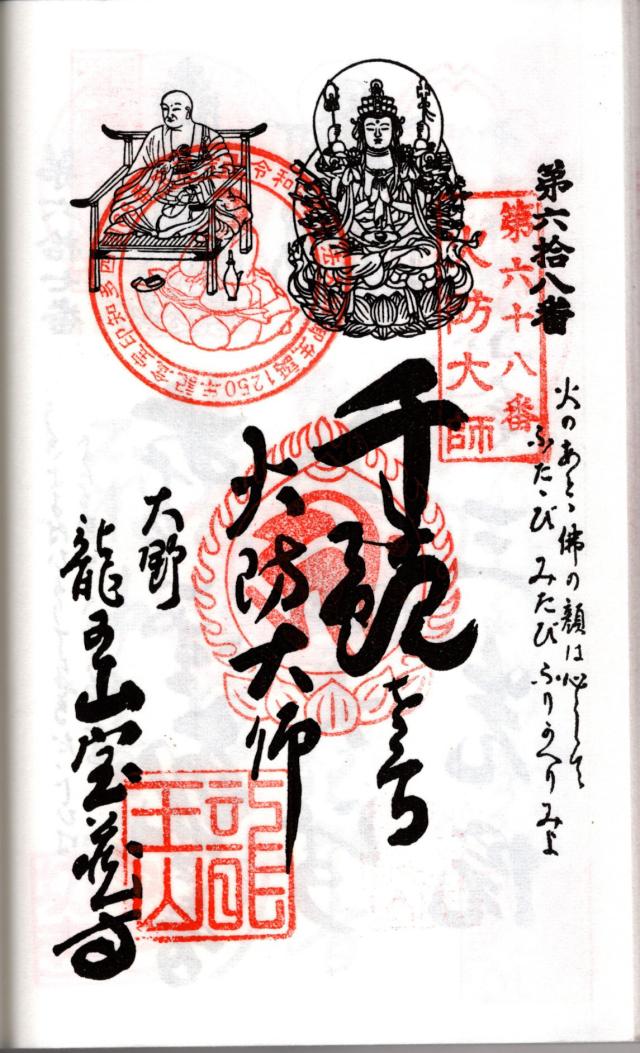 第六拾八番
火のあと佛の顔は心して
ふたゝび みたび ふりかへりみよ
第六十八番
火防大師
千観
火防大師
大野
龍王山宝蔵寺
龍王山
令和
御生誕1250年記念宝印知多四